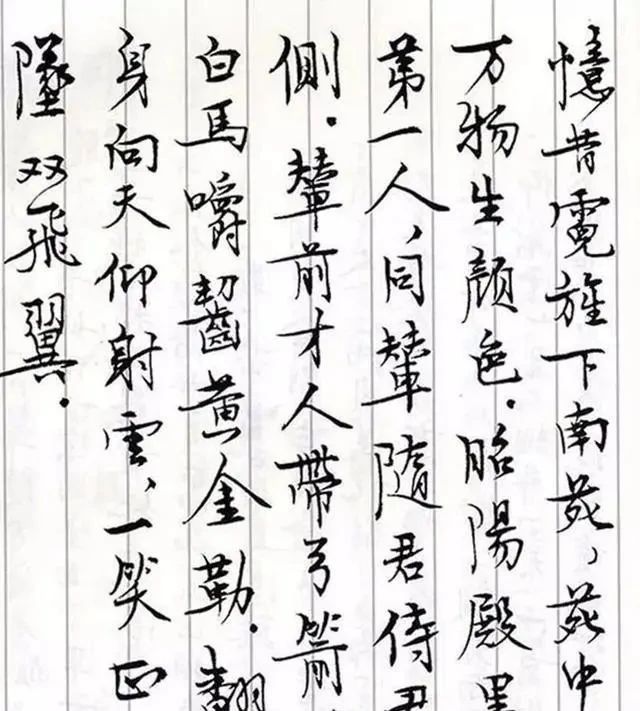 憶昔霓旌下南苑，苑中
万物生顔色。昭陽殿里
第一人，同輦隨君侍君
側。輦前才人帶弓箭
白馬嚼齧黄金勒。翻
身向天仰射雲，一笑正
墜双飛翼。